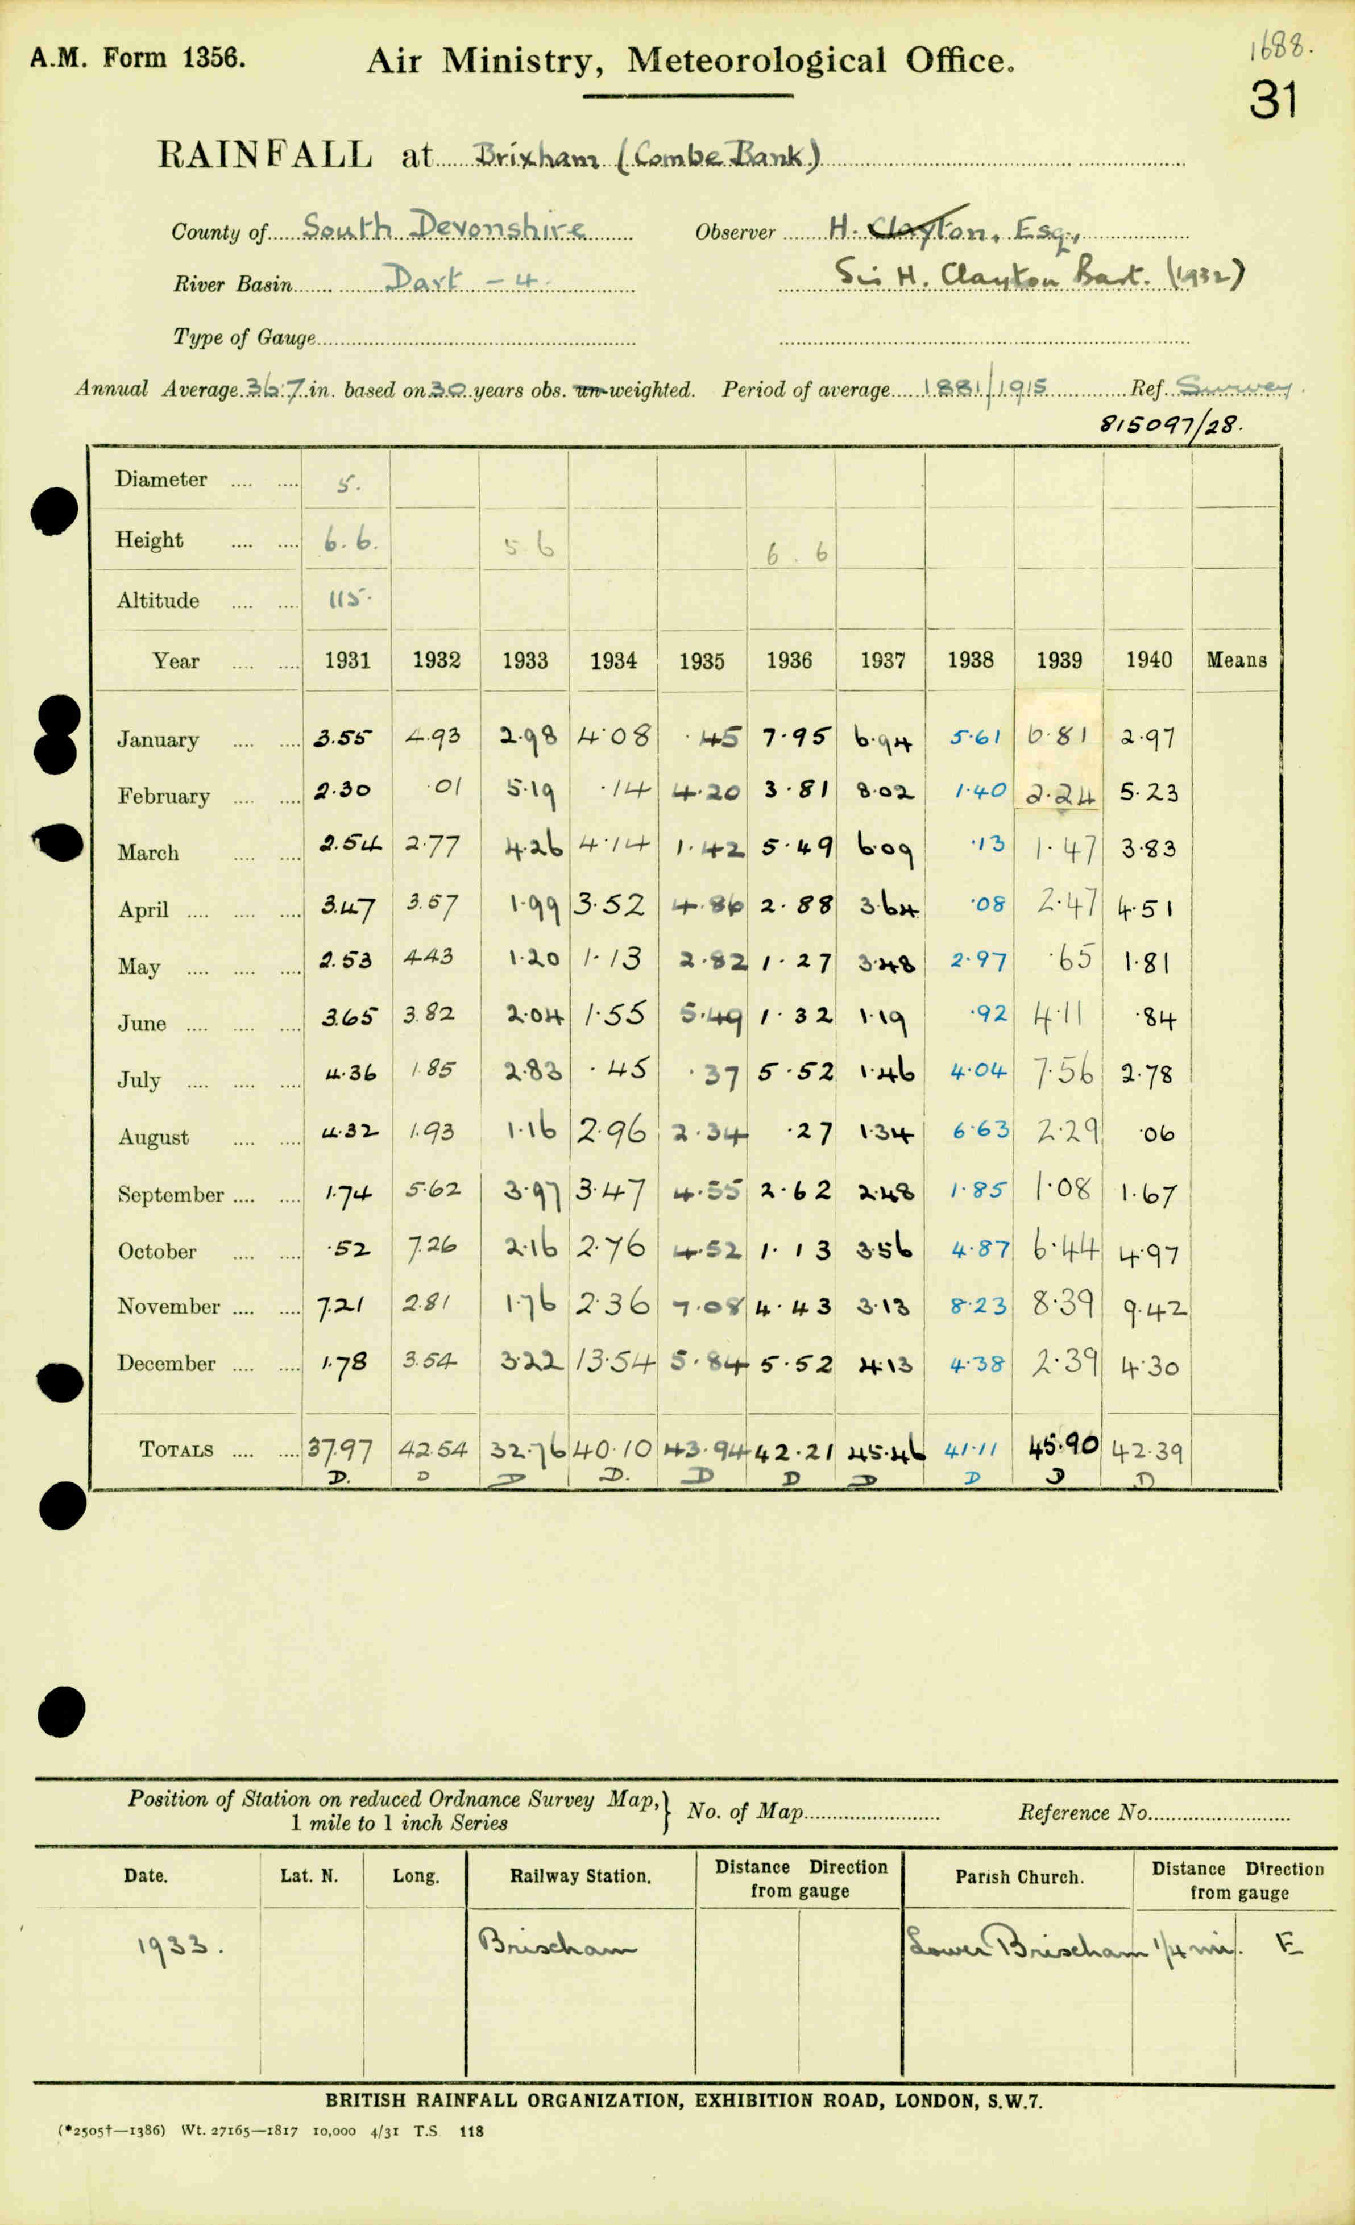 A.M. Form 1356.
Air Ministry, Meteorological Office.
1688.
31
RAINFALL at Brixham (Combe Bank)
County of South Devonshire Observer H. Clayton, Esq.,
River Basin Dart - 4. Sir H. Clayton Bart. (1932)
Type of Gauge
Annual Average 36.7 in. based on 30 years obs. un-weighted. Period of average 1881/1915 Ref. Survey.
815097/28.
Diameter .... .... 5.
Height .... .... 6.6. 5 6 6.6
Altitude .... .... 115.
Year .... .... 1931 1932 1933 1934 1935 1936 1937 1938 1939 1940 Means
January .... .... 3.55 4.93 2.98 4.08 .45 7.95 6.94 5.61 6.81 2.97
February .... .... 2.30 .01 5.19 .14 4.20 3.81 8.02 1.40 2.24 5.23
March .... .... 2.54 2.77 4.26 4.14 1.42 5.49 6.09 .13 1.47 3.83
April .... .... .... 3.47 3.57 1.99 3.52 4.86 2.88 3.64 .08 2.47 4.51
May .... .... .... 2.53 4.43 1.20 1.13 2.82 1.27 3.48 2.97 .65 1.81
June .... .... .... 3.65 3.82 2.04 1.55 5.49 1.32 1.19 .92 4.11 .84
July .... .... .... 4.36 1.85 2.83 .45 .37 5.52 1.46 4.04 7.56 2.78
August .... .... 4.32 1.93 1.16 2.96 2.34 .27 1.34 6.63 2.29 .06
September .... .... 1.74 5.62 3.97 3.47 4.55 2.62 2.48 1.85 1.08 1.67
October .... .... .52 7.26 2.16 2.76 4.52 1.13 3.56 4.87 6.44 4.97
November .... .... 7.21 2.81 1.76 2.36 7.08 4.43 3.13 8.23 8.39 9.42
December .... .... 1.78 3.54 3.22 13.54 5.84 5.52 4.13 4.38 2.39 4.30
TOTALS .... .... 37.97 42.54 32.76 40.10 43.94 42.21 45.46 41.11 45.90 42.39
D. D D D. D D D D D D
Position of Station on reduced Ordnance Survey Map,} No. of Map Reference No.
1 mile to 1 inch Series
Date. Lat. N. Long. Railway Station. Distance Direction from gauge Parish Church. Distance Direction from gauge
1933. Brixham Lower Brixham 1/4 mi. E
BRITISH RAINFALL ORGANIZATION, EXHIBITION ROAD, LONDON, S.W.7.
(*2505†—1386) Wt. 27165—1817 10,000 4/31 T.S. 118